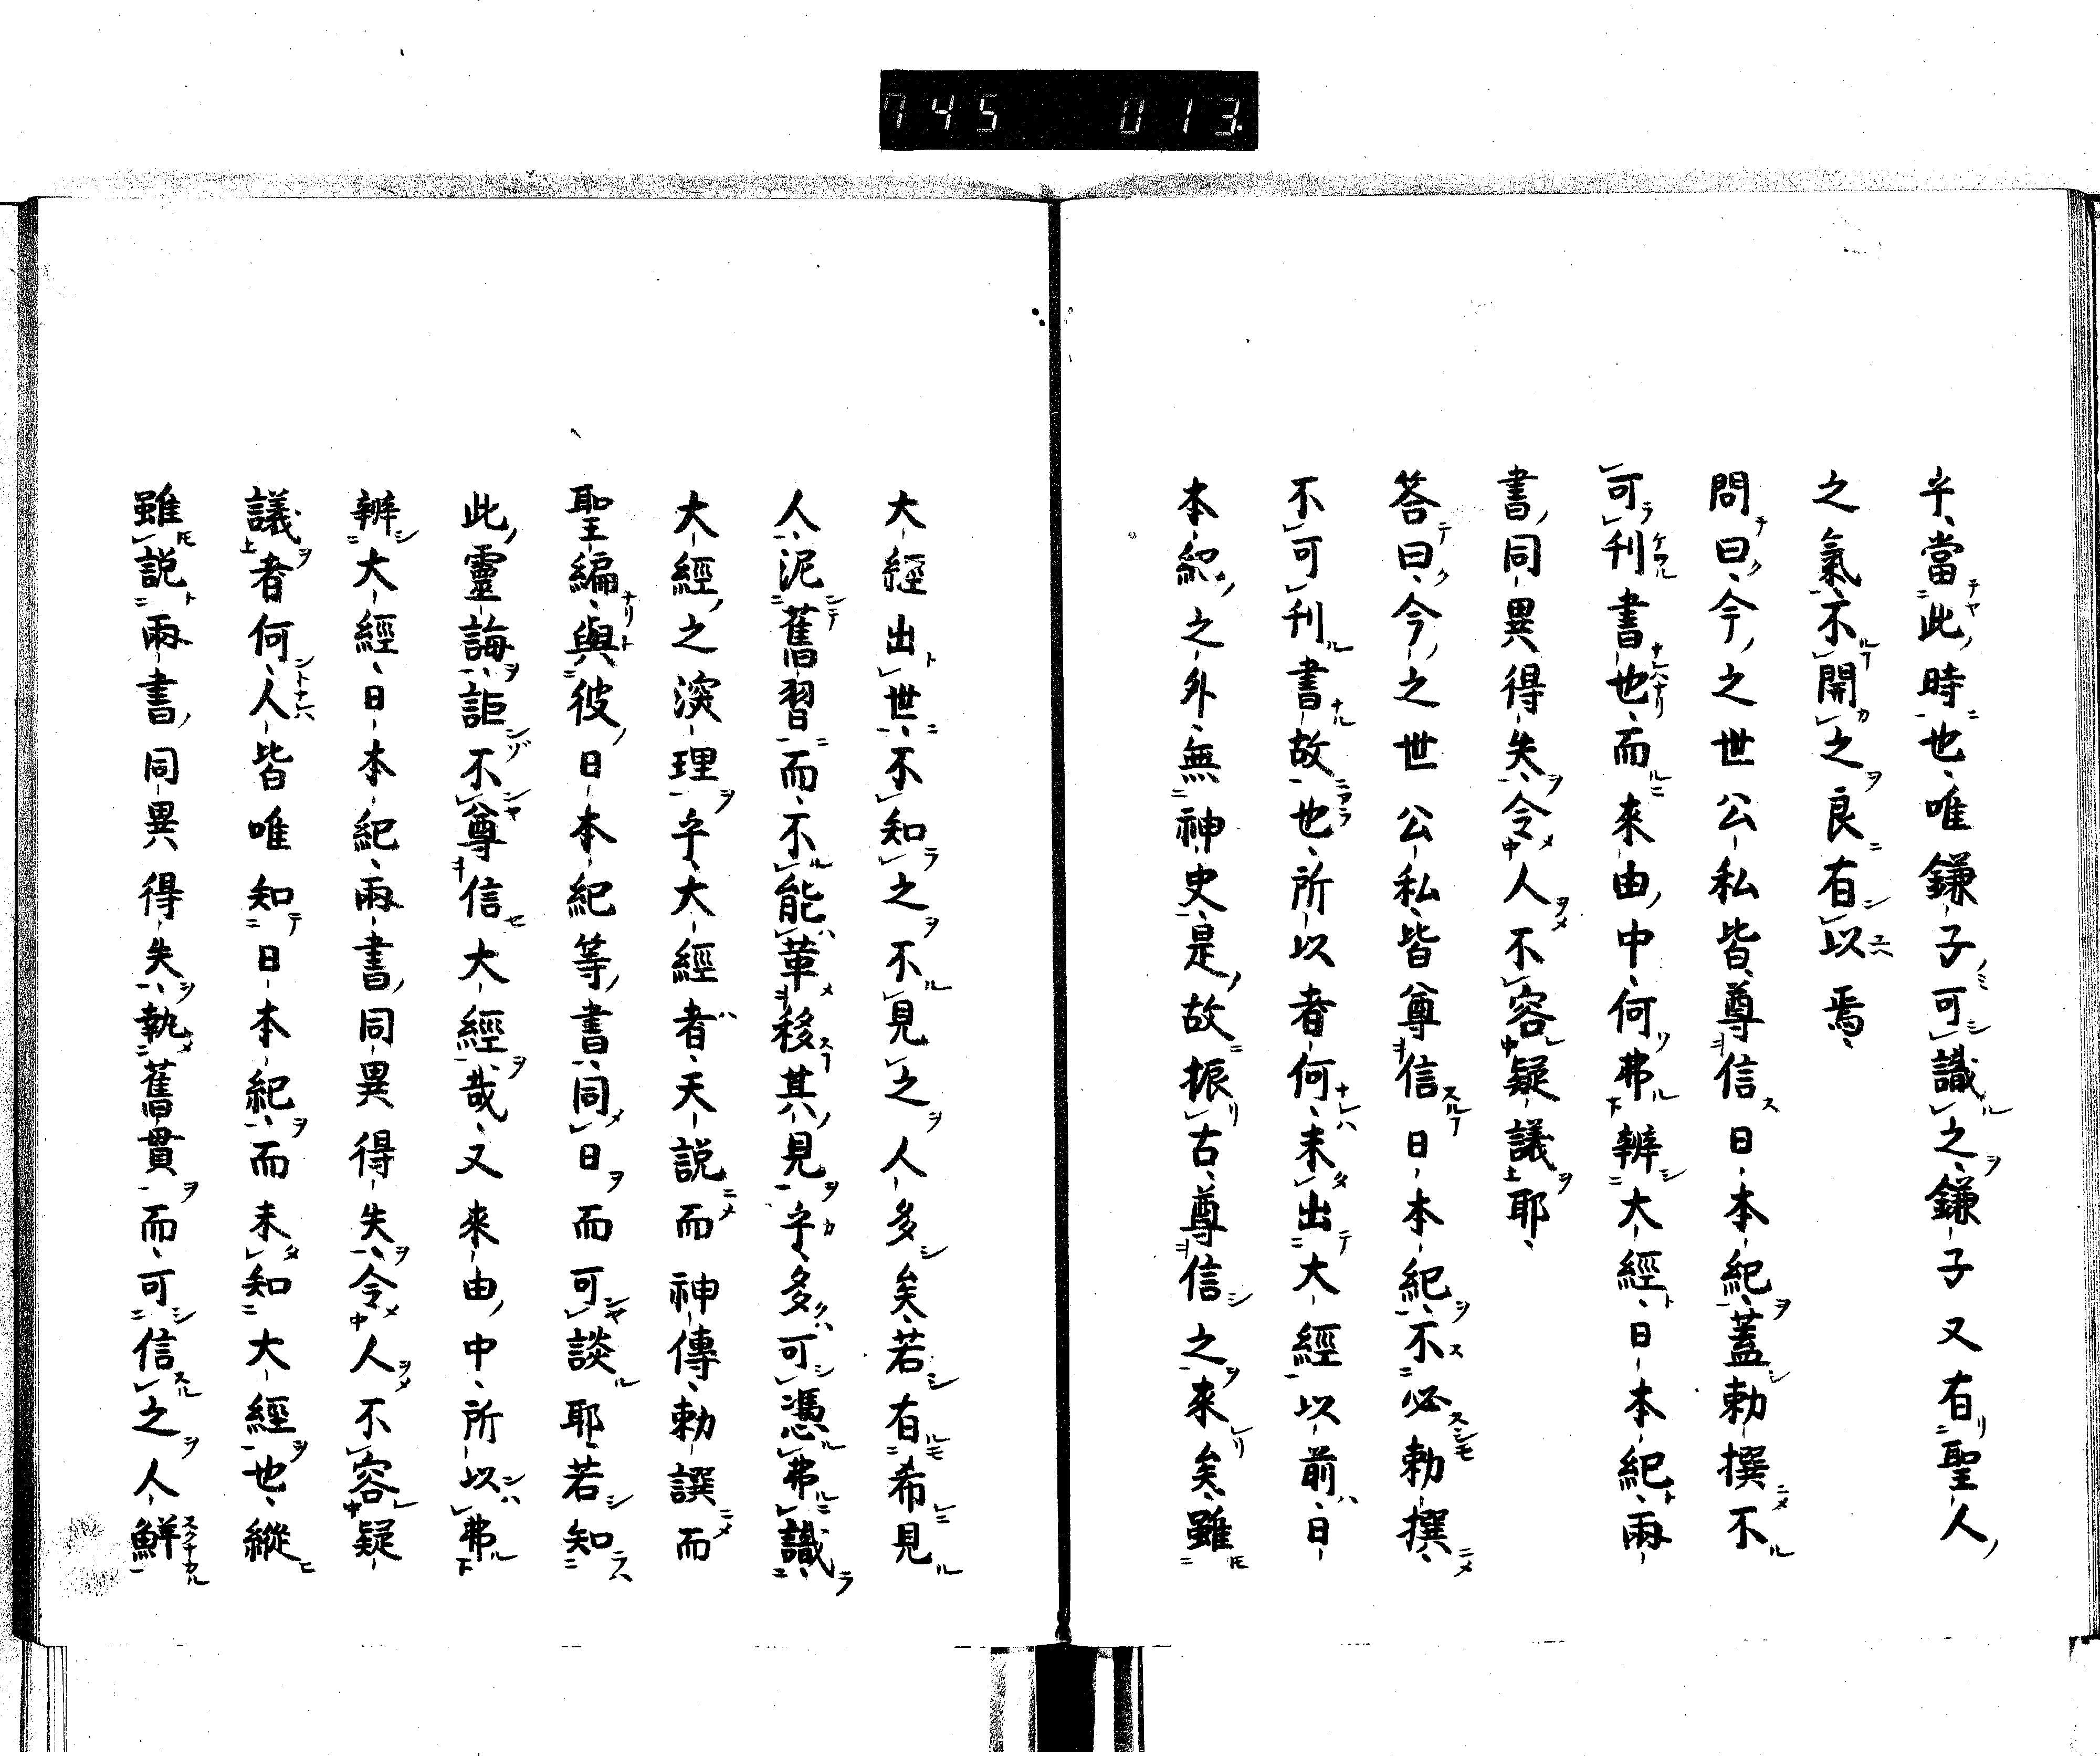 745 013
乎、當此時也、唯鎌子可識之、鎌子又有聖人
之氣、不開之良有以焉、
問曰、今之世公私皆尊信日本紀、蓋勅撰不
可刊書也、而來由中何弗辨大經日本紀兩
書同異得失、令人不容疑議耶、
答曰、今之世公私皆尊信日本紀、不必勅撰、
不可刊書故也、所以者何、未出大經以前日
本紀之外、無神史、是故振古尊信之來矣、雖
大經出世、不知之不見之人多矣、若有希見
人、泥舊習而不能革移其見乎、多可憑弗識、
大經之渁理乎、大經者、天説而神傳、勅譔而
聖編、與彼日本紀等書、同日而可談耶、若知
此靈誨、詎不尊信大經哉、又來由中所以弗
辨大經、日本紀、兩書同異得失、令人不容疑
議者何、人皆唯知日本紀、而未知大經也、縱
雖説兩書同異得失、執舊貫而、可信之人鮮